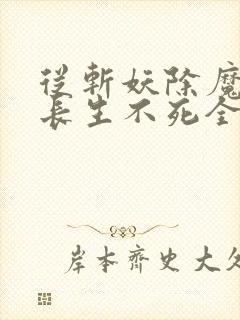 從斬妖除魔
長生不死全
岸本齊史大久